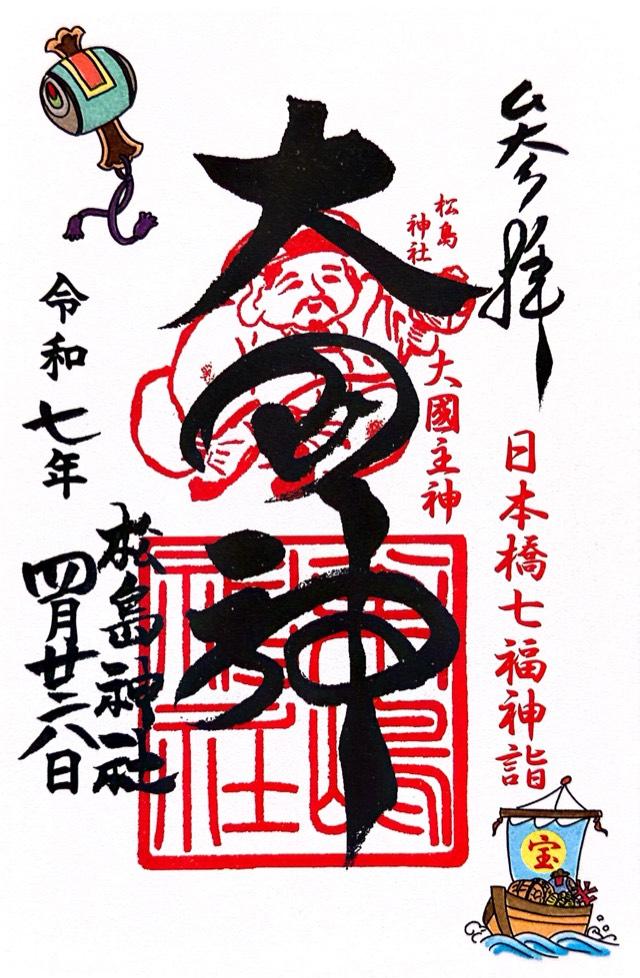 参拝
日本橋七福神詣
宝
松島
神社
大國主神
大国神
松島神社
令和七年
四月廿八日